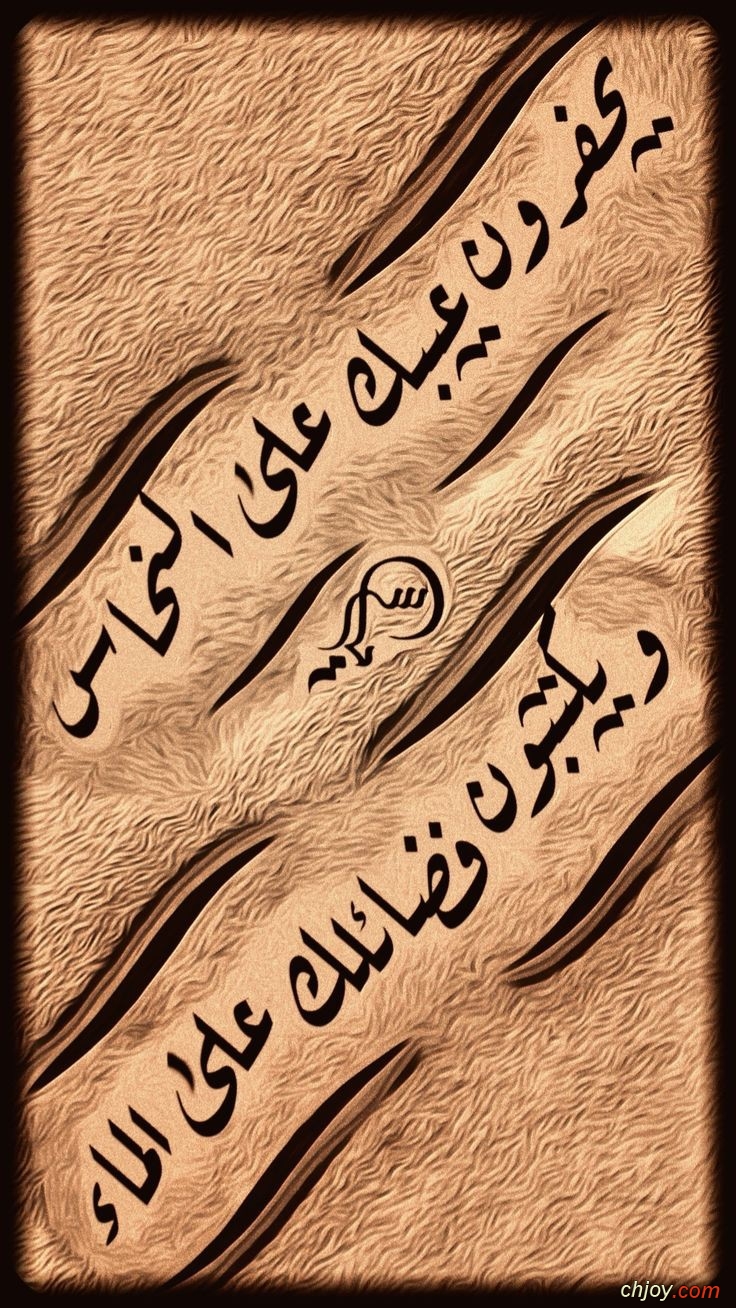 يحفرون عيبك على النحاس
ويكتبون فضائلك على الماء
chjoy.com